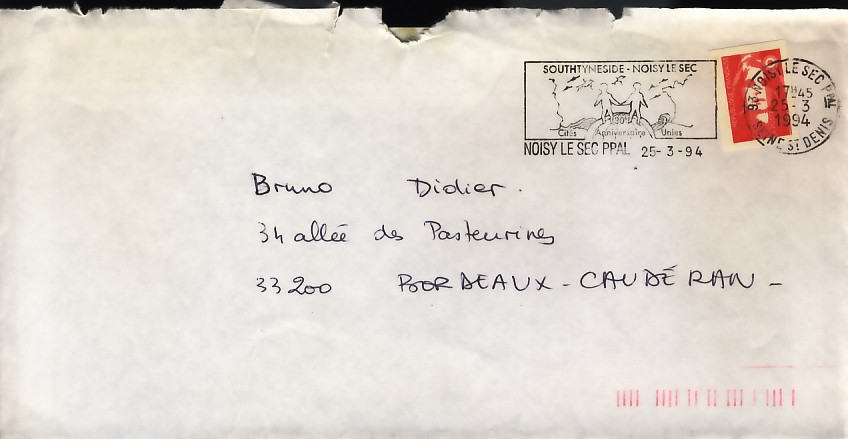 SOUTHTYNESIDE - NOISY LE SEC
30e
Cités Anniversaire Unies
NOISY LE SEC PPAL 25-3-94
93 NOISY LE SEC PPAL
17H45
25-3
1994
SEINE ST DENIS
Bruno Didier.
34 allée des Pasteurines
33200 BORDEAUX - CAUDÉRAN -